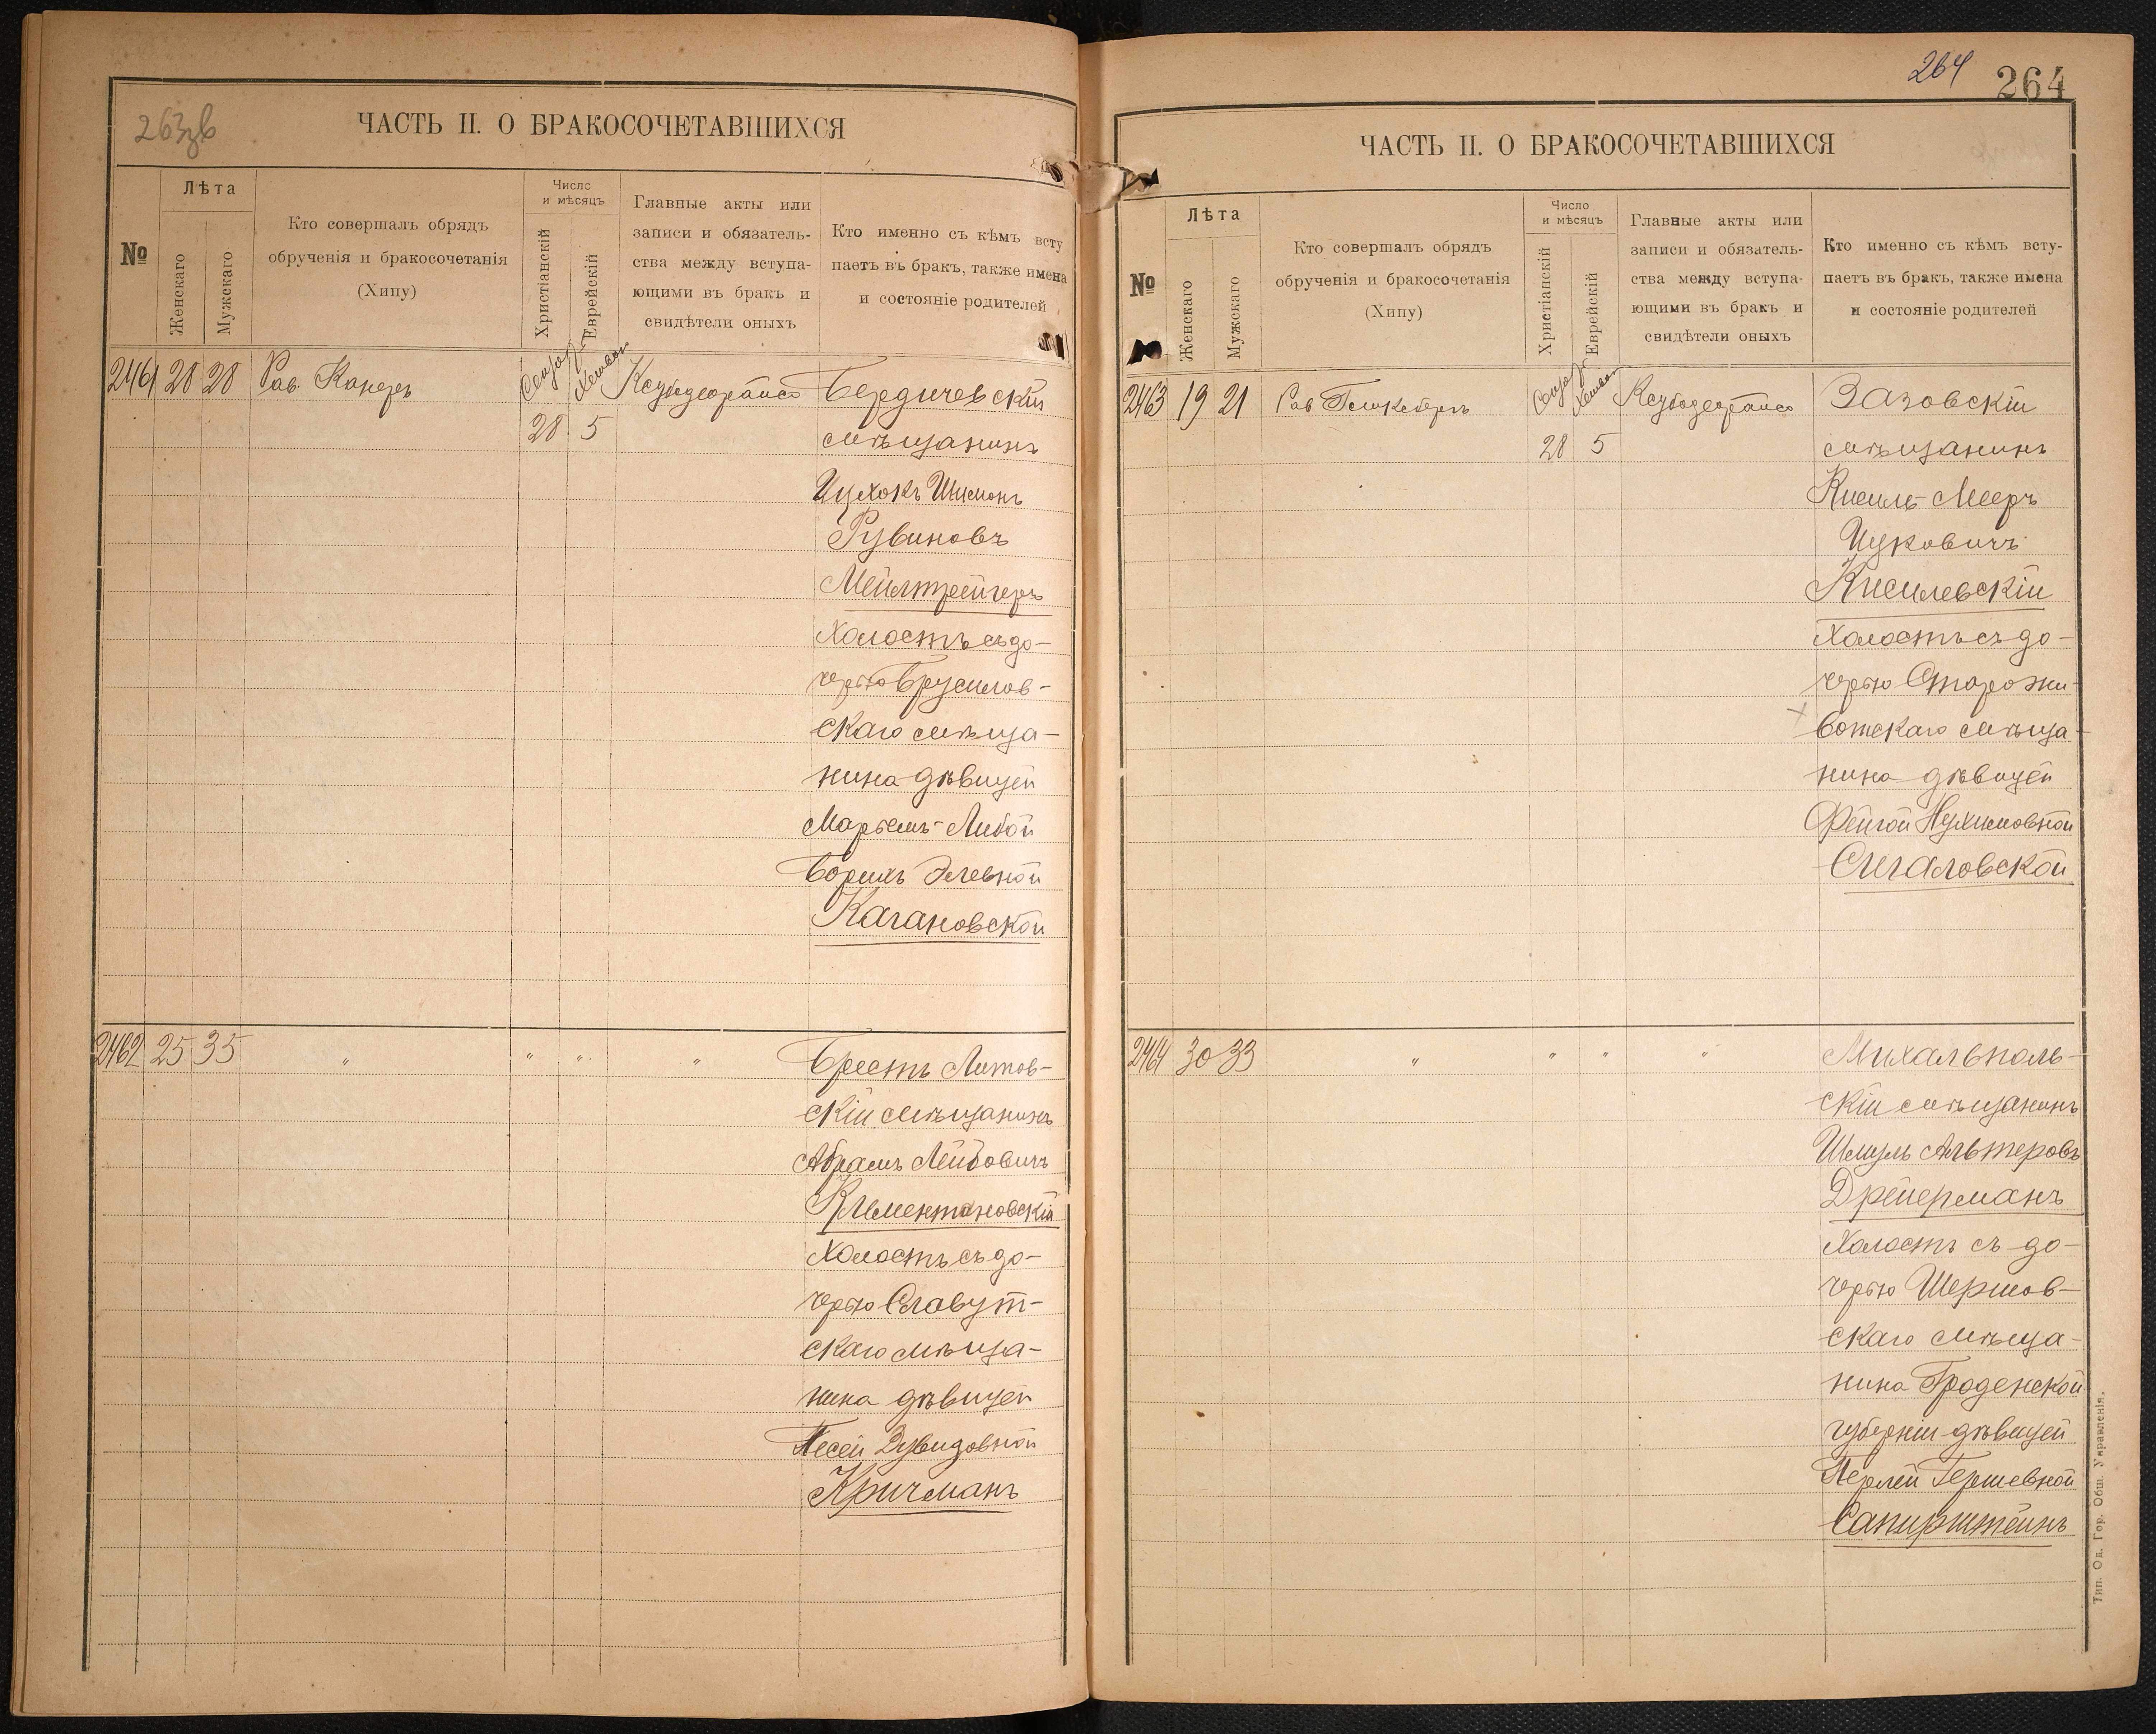 263зв
ЧАСТЬ II. О БРАКОСОЧЕТАВШИХСЯ
№
Лѣта
Женскаго
Мужскаго
Кто совершалъ обрядъ
обрученія и бракосочетанія
(Хипу)
Число
и мѣсяцъ
Христіанскій
Еврейскій
Главные акты или
записи и обязатель-
ства между вступа-
ющими въ бракъ и
свидѣтели оныхъ
Кто именно съ кѣмъ всту
паетъ въ бракъ, также имена
и состояніе родителей
2461 28 28 Рав. Канеръ
28 5
Бердичевскій
мѣщанинъ
Ицхокъ Шимонъ
Рувиновъ
Мейлтрейгеръ
холостъ съ до-
черью Брусилов-
скаго мѣща-
нина дѣвицей
Марьемъ-Либой
Борихъ Элевной
Кагановской
2462 25 35 " " " "
Брестъ Литов-
скій мѣщанинъ
Абрамъ Лейбовичъ
Климентиновскій
холостъ съ до-
черью Славут-
скаго мѣща-
нина дѣвицей
Песей Дувидовной
Кричманъ
264
264
ЧАСТЬ II. О БРАКОСОЧЕТАВШИХСЯ
№
Лѣта
Женскаго
Мужскаго
Кто совершалъ обрядъ
обрученія и бракосочетанія
(Хипу)
Число
и мѣсяцъ
Христіанскій
Еврейскій
Главные акты или
записи и обязатель-
ства между вступа-
ющими въ бракъ и
свидѣтели оныхъ
Кто именно съ кѣмъ всту-
паетъ въ бракъ, также имена
и состояніе родителей
2463 19 21 Рав
28 5
Зазовскій
мѣщанинъ
Кисиль-Мееръ
Ицковичъ
Кисилевскій
холостъ съ до-
черью Старожи-
вотскаго мѣща-
нина дѣвицей
Фейгой Нухимовной
Сигаловской
2464 30 33 " " " "
Михальполь-
скій мѣщанинъ
Шмуль Альтеровъ
Дрейерманъ
холостъ съ до-
черью Шершов-
скаго мѣща-
нина Гроденской
губерніи дѣвицей
Перлей Гершевной
Сапирштейнъ
Тип. Од. Гор. Общ. Управленія.